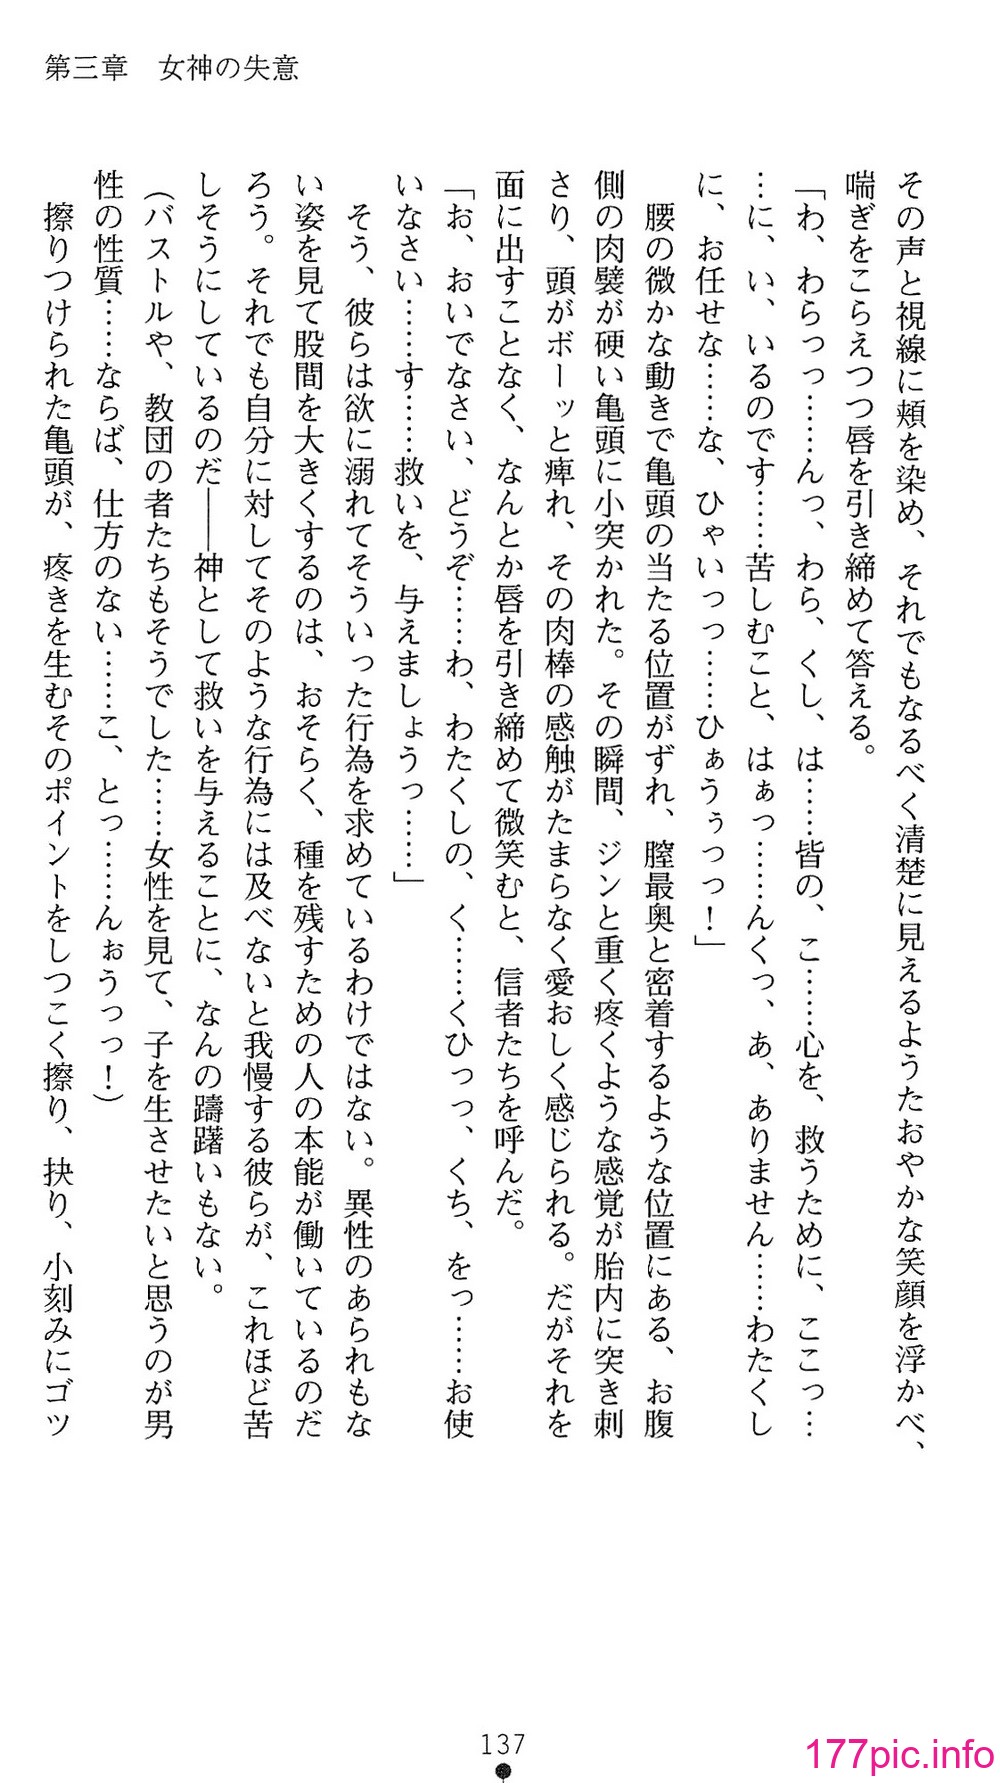 第三章　女神の失意
その声と視線に頬を染め、それでもなるべく清楚に見えるようたおやかな笑顔を浮かべ、
喘ぎをこらえつつ唇を引き締めて答える。
「わ、わらっっ……んっ、わら、くし、は……皆の、こ……心を、救うために、ここっ…
…に、い、いるのです……苦しむこと、はぁっ……んくっ、あ、ありません……わたくし
に、お任せな……な、ひゃいっっ……ひぁうぅっっ！」
　腰の微かな動きで亀頭の当たる位置がずれ、膣最奥と密着するような位置にある、お腹
側の肉襞が硬い亀頭に小突かれた。その瞬間、ジンと重く疼くような感覚が胎内に突き刺
さり、頭がボーッと痺れ、その肉棒の感触がたまらなく愛おしく感じられる。だがそれを
面に出すことなく、なんとか唇を引き締めて微笑むと、信者たちを呼んだ。
「お、おいでなさい、どうぞ……わ、わたくしの、く……くひっっ、くち、をっ……お使
いなさい……す……救いを、与えましょうっ……」
　そう、彼らは欲に溺れてそういった行為を求めているわけではない。異性のあられもな
い姿を見て股間を大きくするのは、おそらく、種を残すための人の本能が働いているのだ
ろう。それでも自分に対してそのような行為には及べないと我慢する彼らが、これほど苦
しそうにしているのだ――神として救いを与えることに、なんの躊躇いもない。
（バストルや、教団の者たちもそうでした……女性を見て、子を生させたいと思うのが男
性の性質……ならば、仕方のない……こ、とっ……んぉうっっ！）
　擦りつけられた亀頭が、疼きを生むそのポイントをしつこく擦り、抉り、小刻みにゴツ
137
177pic.info